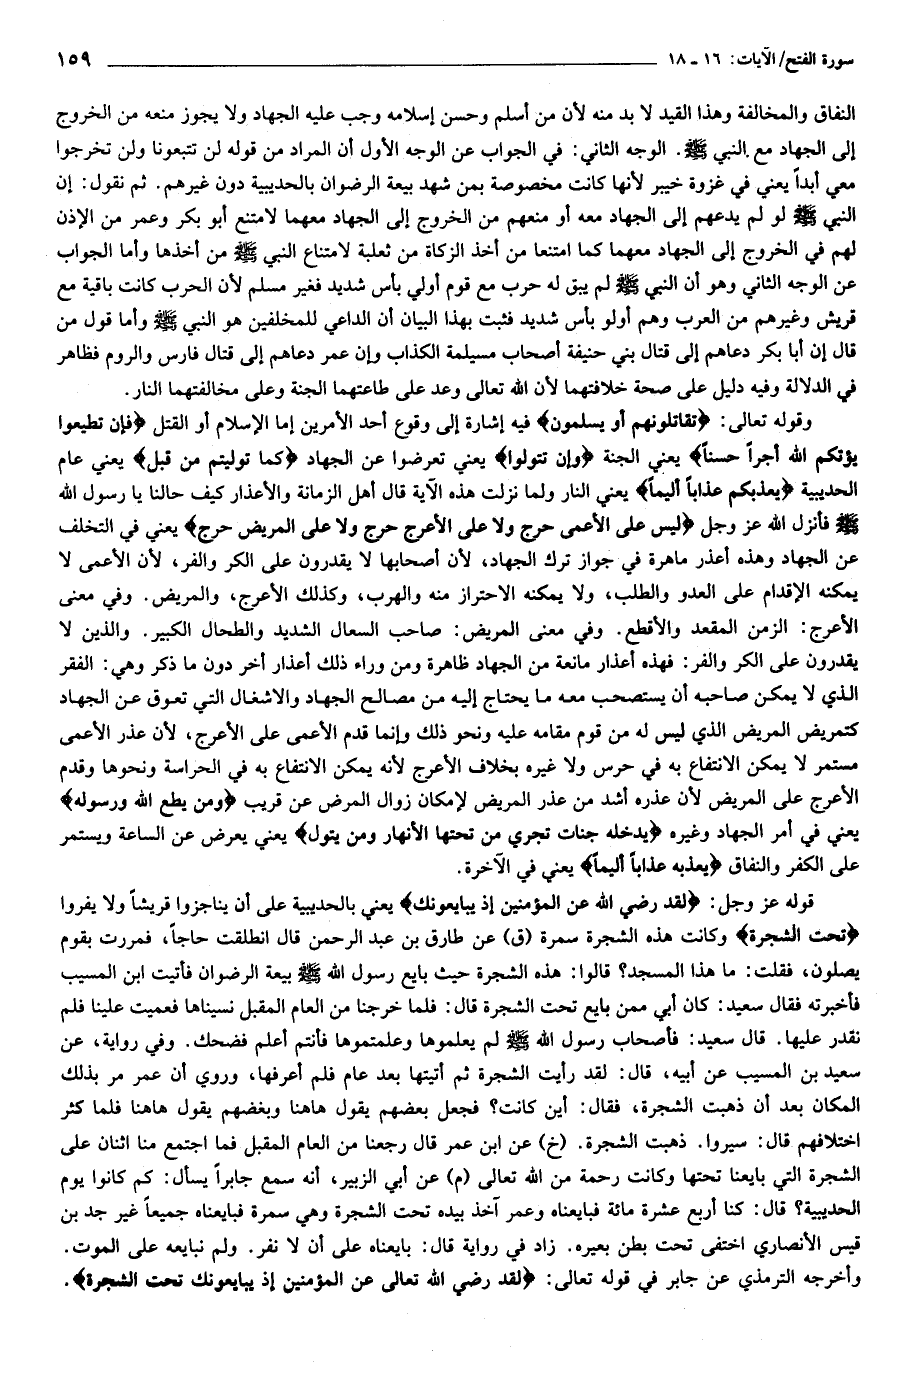 سورة الفتح/ الآيات: ١٦ ـ ١٨ ١٥٩
النفاق والمخالفة وهذا القيد لا بد منه لأن من أسلم وحسن إسلامه وجب عليه الجهاد ولا يجوز منعه من الخروج
إلى الجهاد مع النبي ﷺ. الوجه الثاني: في الجواب عن الوجه الأول أن المراد من قوله لن تتبعونا ولن تخرجوا
معي أبداً يعني في غزوة خيبر لأنها كانت مخصوصة بمن شهد بيعة الرضوان بالحديبية دون غيرهم. ثم نقول: إن
النبي ﷺ لو لم يدعهم إلى الجهاد معه أو منعهم من الخروج إلى الجهاد معهما لامتنع أبو بكر وعمر من الإذن
لهم في الخروج إلى الجهاد معهما كما امتنعا من أخذ الزكاة من ثعلبة لامتناع النبي ﷺ من أخذها وأما الجواب
عن الوجه الثاني وهو أن النبي ﷺ لم يبق له حرب مع قوم أولي بأس شديد فغير مسلم لأن الحرب كانت باقية مع
قريش وغيرهم من العرب وهم أولو بأس شديد فثبت بهذا البيان أن الداعي للمخلفين هو النبي ﷺ وأما قول من
قال إن أبا بكر دعاهم إلى قتال بني حنيفة أصحاب مسيلمة الكذاب وإن عمر دعاهم إلى قتال فارس والروم فظاهر
في الدلالة وفيه دليل على صحة خلافتهما لأن الله تعالى وعد على طاعتهما الجنة وعلى مخالفتهما النار.
وقوله تعالى: ﴿تقاتلونهم أو يسلمون﴾ فيه إشارة إلى وقوع أحد الأمرين إما الإسلام أو القتل ﴿فإن تطيعوا
يؤتكم الله أجراً حسناً﴾ يعني الجنة ﴿وإن تتولوا﴾ يعني تعرضوا عن الجهاد ﴿كما توليتم من قبل﴾ يعني عام
الحديبية ﴿يعذبكم عذاباً أليماً﴾ يعني النار ولما نزلت هذه الآية قال أهل الزمانة والأعذار كيف حالنا يا رسول الله
ﷺ فأنزل الله عز وجل ﴿ليس على الأعمى حرج ولا على الأعرج حرج ولا على المريض حرج﴾ يعني في التخلف
عن الجهاد وهذه أعذر ماهرة في جواز ترك الجهاد، لأن أصحابها لا يقدرون على الكر والفر، لأن الأعمى لا
يمكنه الإقدام على العدو والطلب، ولا يمكنه الاحتراز منه والهرب، وكذلك الأعرج، والمريض. وفي معنى
الأعرج: الزمن المقعد والأقطع. وفي معنى المريض: صاحب السعال الشديد والطحال الكبير. والذين لا
يقدرون على الكر والفر: فهذه أعذار مانعة من الجهاد ظاهرة ومن وراء ذلك أعذار أخر دون ما ذكر وهي: الفقر
الذي لا يمكن صاحبه أن يستصحب معه ما يحتاج إليه من مصالح الجهاد والاشغال التي تعوق عن الجهاد
كتمريض المريض الذي ليس له من قوم مقامه عليه ونحو ذلك وإنما قدم الأعمى على الأعرج، لأن عذر الأعمى
مستمر لا يمكن الانتفاع به في حرس ولا غيره بخلاف الأعرج لأنه يمكن الانتفاع به في الحراسة ونحوها وقدم
الأعرج على المريض لأن عذره أشد من عذر المريض لإمكان زوال المرض عن قريب ﴿ومن يطع الله ورسوله﴾
يعني في أمر الجهاد وغيره ﴿يدخله جنات تجري من تحتها الأنهار ومن يتول﴾ يعني يعرض عن الساعة ويستمر
على الكفر والنفاق ﴿يعذبه عذاباً أليماً﴾ يعني في الآخرة.
قوله عز وجل: ﴿لقد رضي الله عن المؤمنين إذ يبايعونك﴾ يعني بالحديبية على أن يناجزوا قريشاً ولا يفروا
﴿تحت الشجرة﴾ وكانت هذه الشجرة سمرة (ق) عن طارق بن عبد الرحمن قال انطلقت حاجاً، فمررت بقوم
يصلون، فقلت: ما هذا المسجد؟ قالوا: هذه الشجرة حيث بايع رسول الله ﷺ بيعة الرضوان فأتيت ابن المسيب
فأخبرته فقال سعيد: كان أبي ممن بايع تحت الشجرة قال: فلما خرجنا من العام المقبل نسيناها فعميت علينا فلم
نقدر عليها. قال سعيد: فأصحاب رسول الله ﷺ لم يعلموها وعلمتموها فأنتم أعلم فضحك. وفي رواية، عن
سعيد بن المسيب عن أبيه، قال: لقد رأيت الشجرة ثم أتيتها بعد عام فلم أعرفها، وروي أن عمر مر بذلك
المكان بعد أن ذهبت الشجرة، فقال: أين كانت؟ فجعل بعضهم يقول هاهنا وبغضهم يقول هاهنا فلما كثر
اختلافهم قال: سيروا. ذهبت الشجرة. (خ) عن ابن عمر قال رجعنا من العام المقبل فما اجتمع منا اثنان على
الشجرة التي بايعنا تحتها وكانت رحمة من الله تعالى (م) عن أبي الزبير، أنه سمع جابراً يسأل: كم كانوا يوم
الحديبية؟ قال: كنا أربع عشرة مائة فبايعناه وعمر آخذ بيده تحت الشجرة وهي سمرة فبايعناه جميعاً غير جد بن
قيس الأنصاري اختفى تحت بطن بعيره. زاد في رواية قال: بايعناه على أن لا نفر. ولم نبايعه على الموت.
وأخرجه الترمذي عن جابر في قوله تعالى: ﴿لقد رضي الله تعالى عن المؤمنين إذ يبايعونك تحت الشجرة﴾.